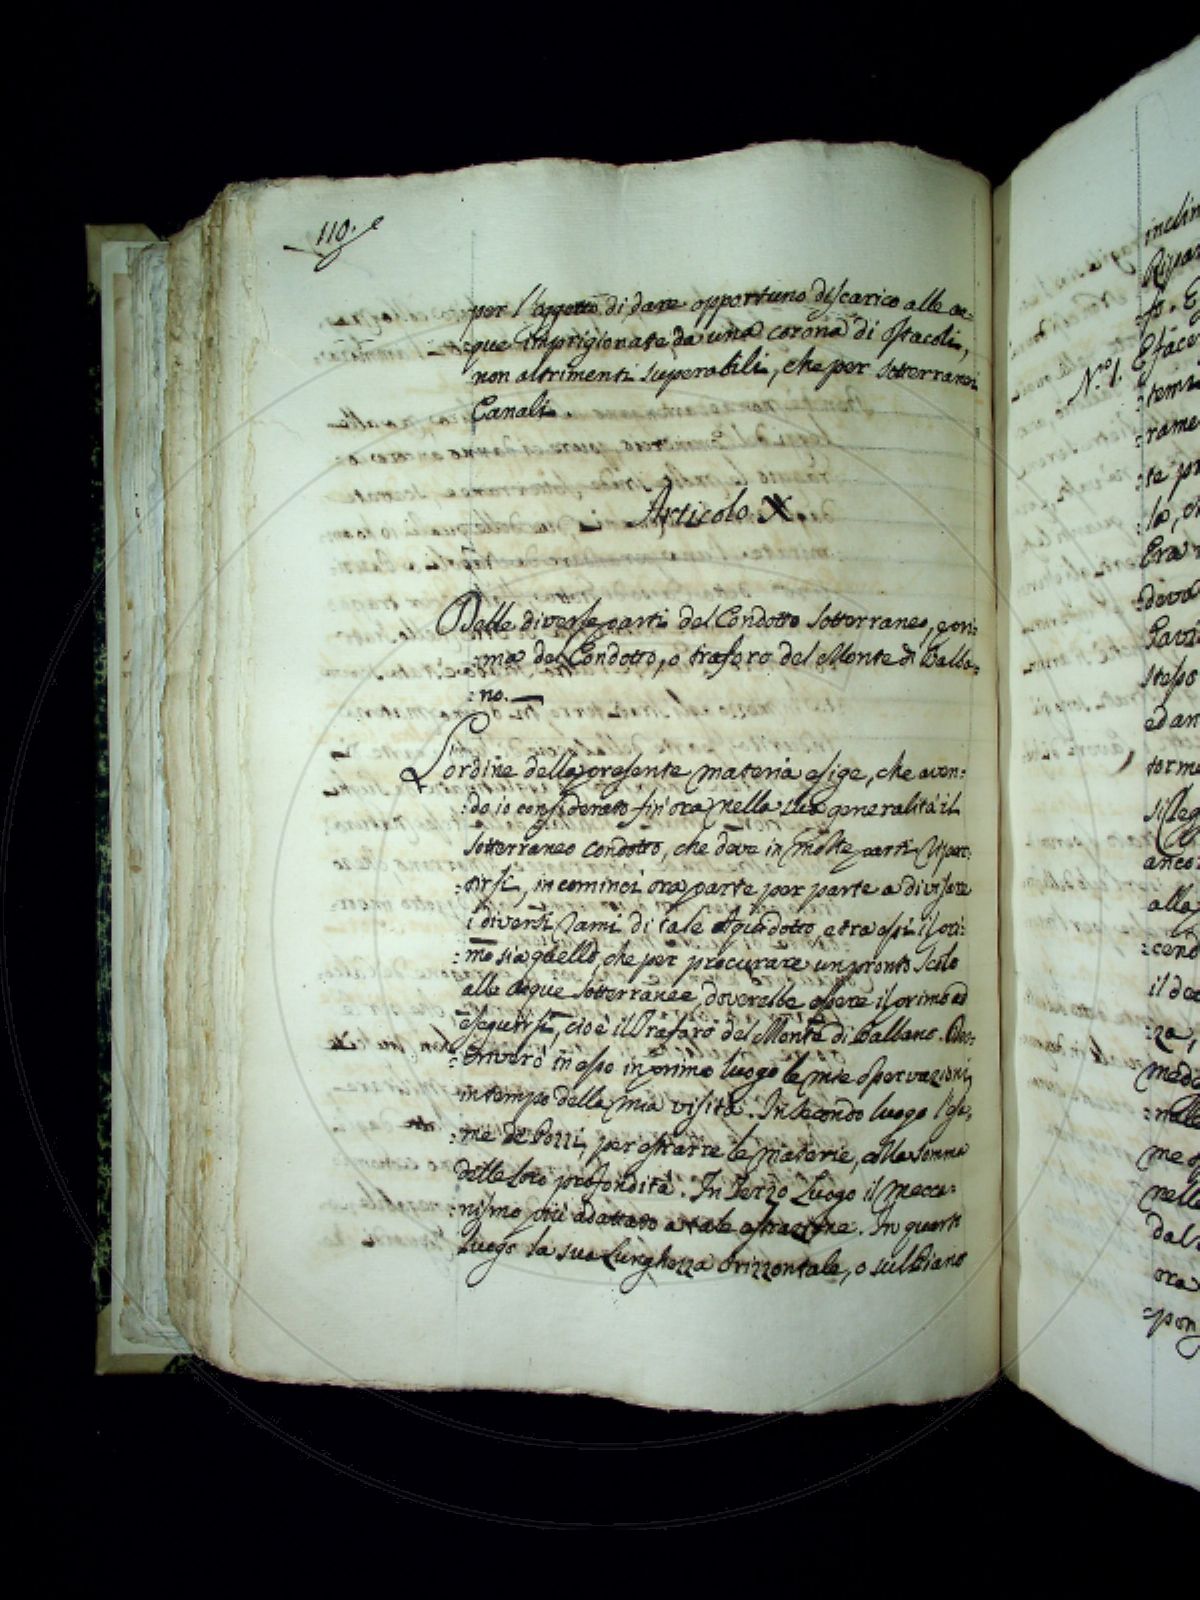 110.
per l'oggetto di dare opportuno discarico alle ac=
:que imprigionate da una corona di ostacoli,
non altrimenti superabili, che per sotterranei
Canali.
Articolo X
Delle diverse parti del Condotto sotterraneo, e pri:
:ma del Condotto, o traforo del Monte di Balba=
:no.
L'ordine della presente materia esige, che aven:
:do io considerato fin'ora nella sua generalità il
sotterraneo condotto, che deve in molte parti ripar:
:tirsi, incominci ora parte per parte a divisare
i diversi rami di tale aquidotto, e tra essi il pri:
:mo sia quello, che per procurare un pronto scolo
alle acque sotterranee, doverebbe essere il primo ad
eseguirsi, cioè il Traforo del Monte di Balbano. Des:
:criverò in esso in primo luogo le mie osservazioni
in tempo della mia visita. In secondo luogo l'esa:
:me de Pozzi, per estrarre le materie, colla somma
delle loro profondità. In terzo Luogo il mecca:
:nismo più adattato a tale estrazione. In quarto
Luogo la sua Lunghezza orizzontale, o sul Piano
inclin
:to. E
Nro. 1.
:temi
:rame
:te pr
:la, o
Era
:deva
Pavi
stesso
ed an
torme
ancor
alla
:cend
il de
:za,
medi
:nelle
me o
nelle
dal
ora
:pon